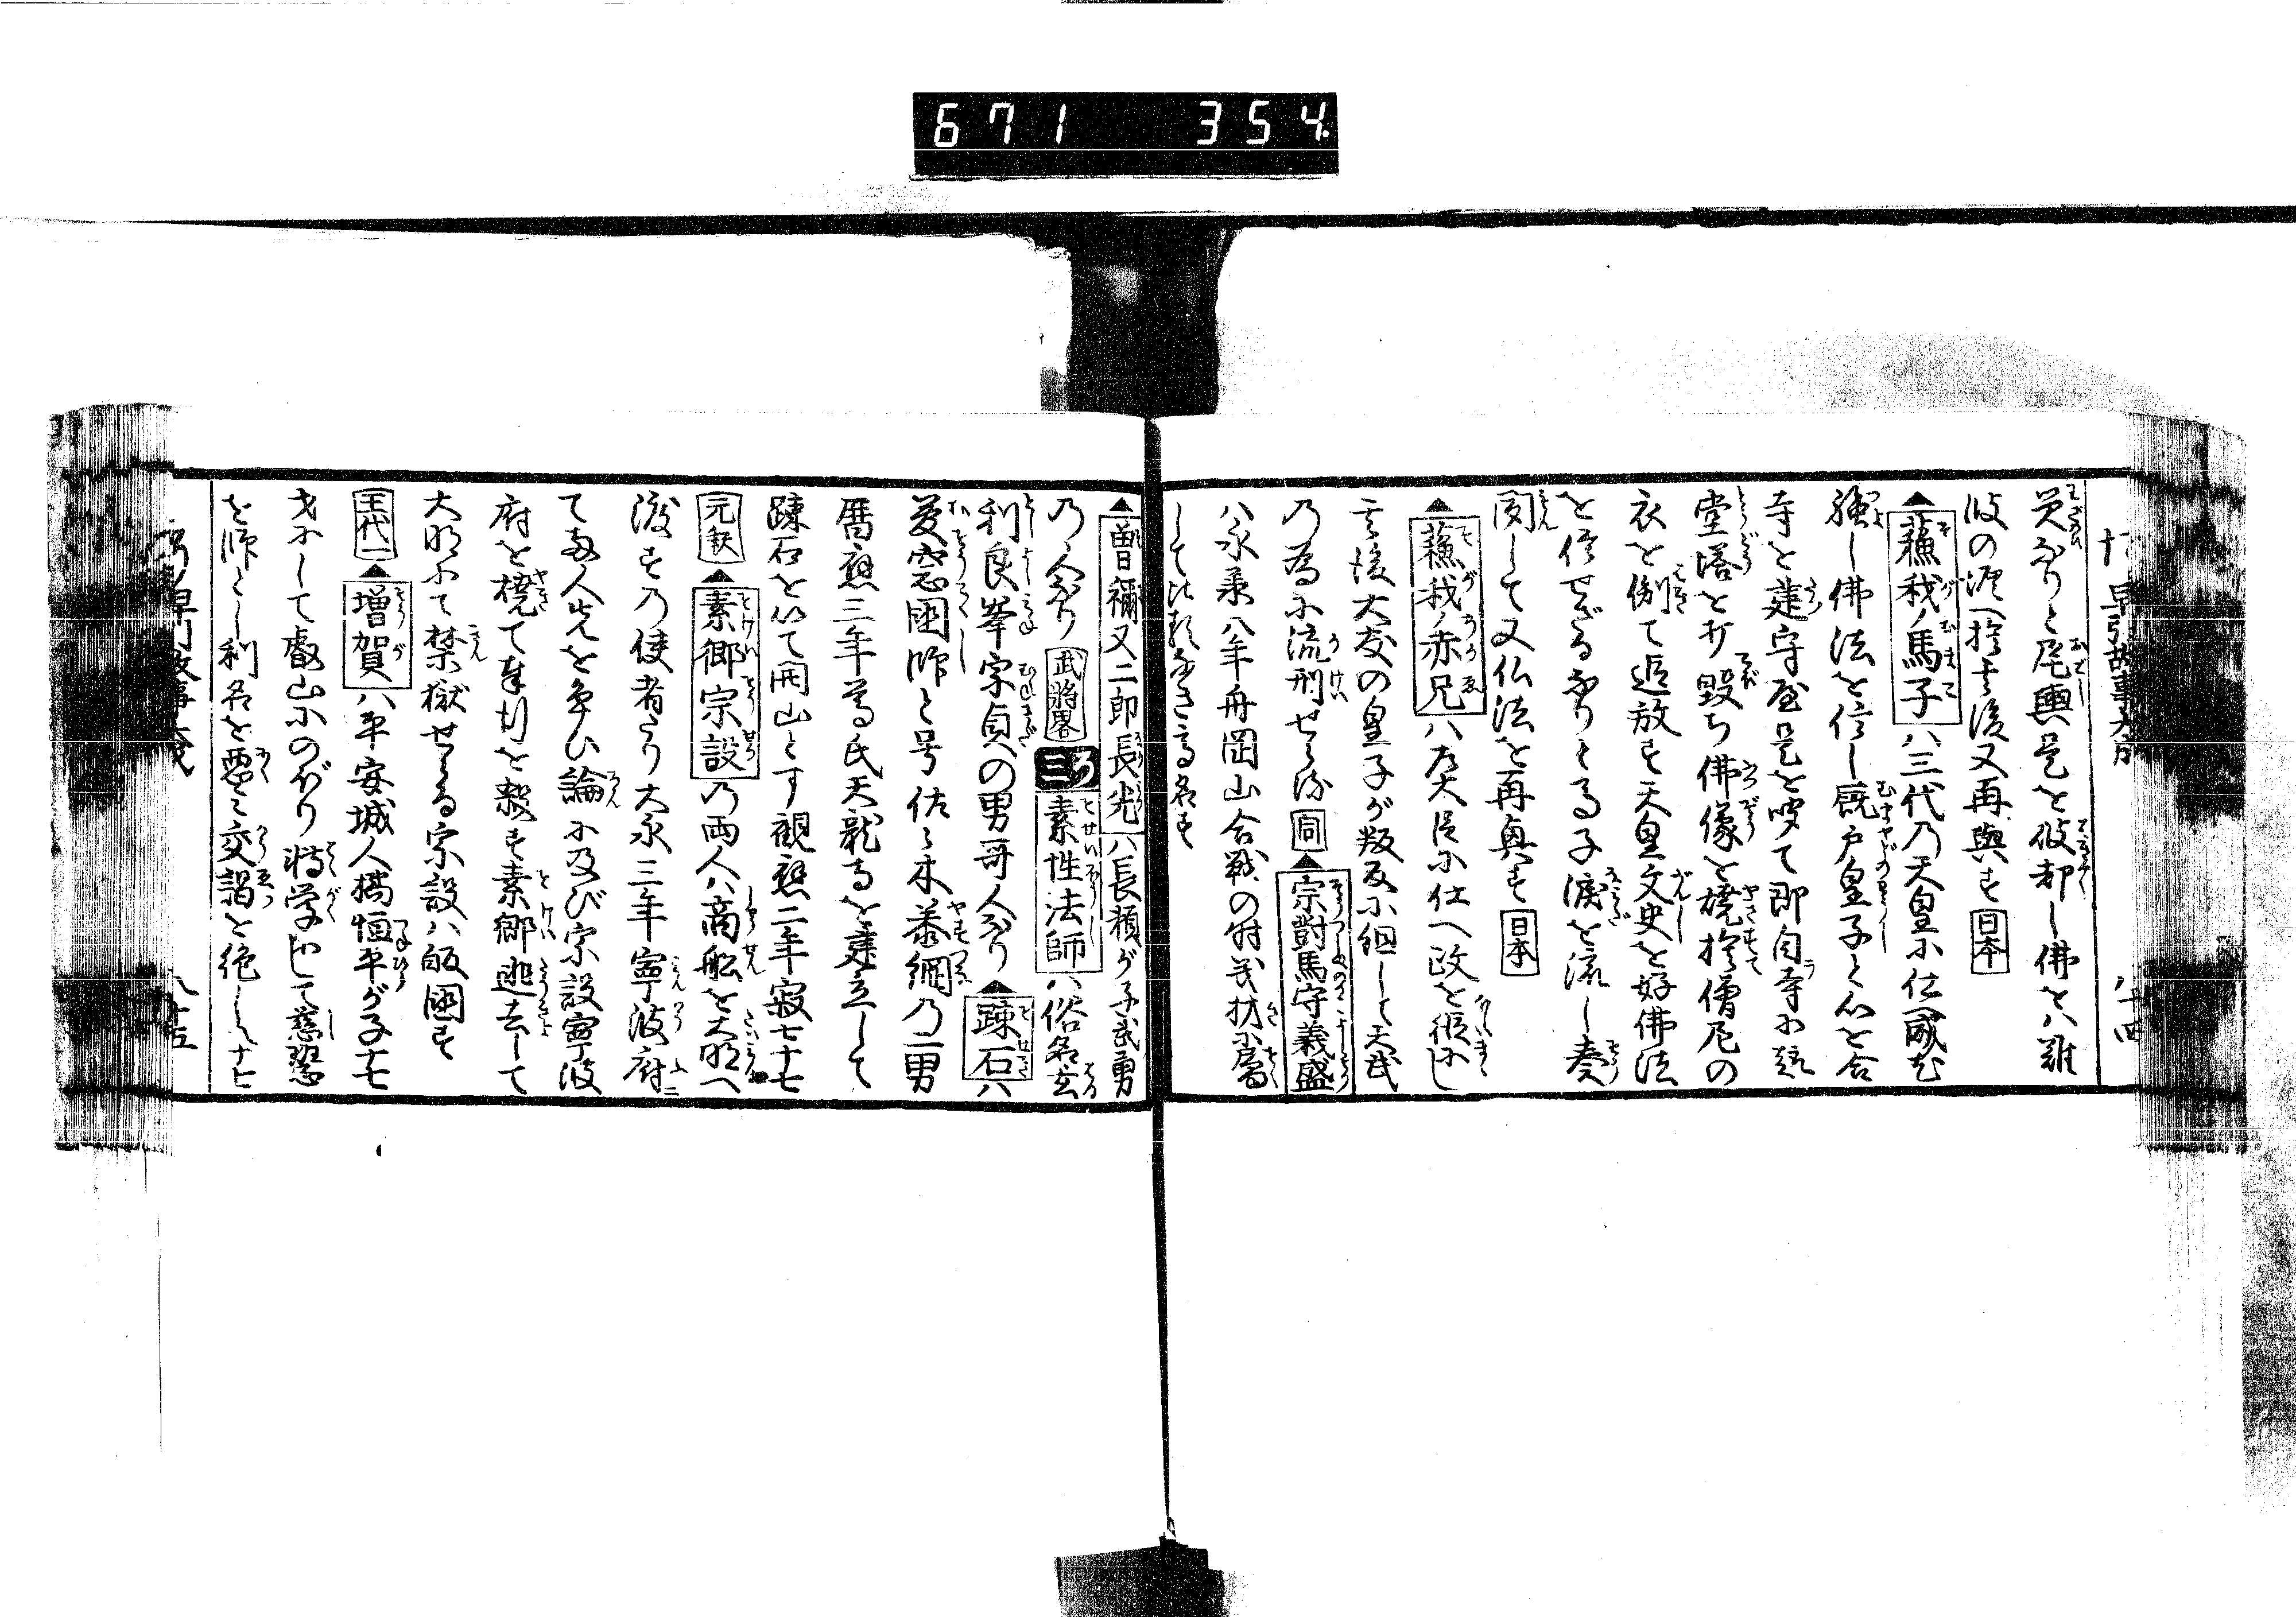 671 354
早引故事大成
八十四
災なりと尾輿是を破却し佛をハ難
波の涯へ捨其後又再興す 日本
▲蘓我ノ馬子ハ三代乃天皇小仕へ威尤
強し佛法を信し厩戸皇子と心を合
寺を建守屋是を破て即自寺小
堂塔を打毀ち佛像を焼捨僧尼の
衣を剝て追放す天皇文史を好佛法
を信せざるなり馬子涙を流し奏
聞して又仏法を再興す 日本
▲蘓我ノ赤兄ハ左大臣小仕へ政を恣にし
其後大友の皇子が叛反小組して天武
乃為小流刑せらる 同 ▲宗對馬守義盛
ハ永禄八年舟岡山合戦の時義村小属
して比類なき高名す
▲曽禰又二郎長光ハ長頼が子武勇
乃人なり 武将畧 三ろ 素性法師ハ俗名玄
利良峯宗貞への男哥人なり ▲踈石ハ
夢窓國師と号佐々木泰綱乃一男
暦應三年尊氏天龍寺を建立して
踈石を以て開山とす観應二年寂七十七
元釈 ▲素郷宗設乃両人ハ商舩を大明へ
渡すの使者たり大永三年寧波府
て両人先を争ひ論小及び宗設寧波
府を焼て奉行を殺す素郷逃去して
大明小て禁獄せらる宗設ハ皈國す
王代一 ▲増賀ハ平安城人橘恒平が子十七
才小して叡山小のぼり精学して慈恵
を師とし利名を悪ミ交謁を絶し八十七
早引故事大成
八十五